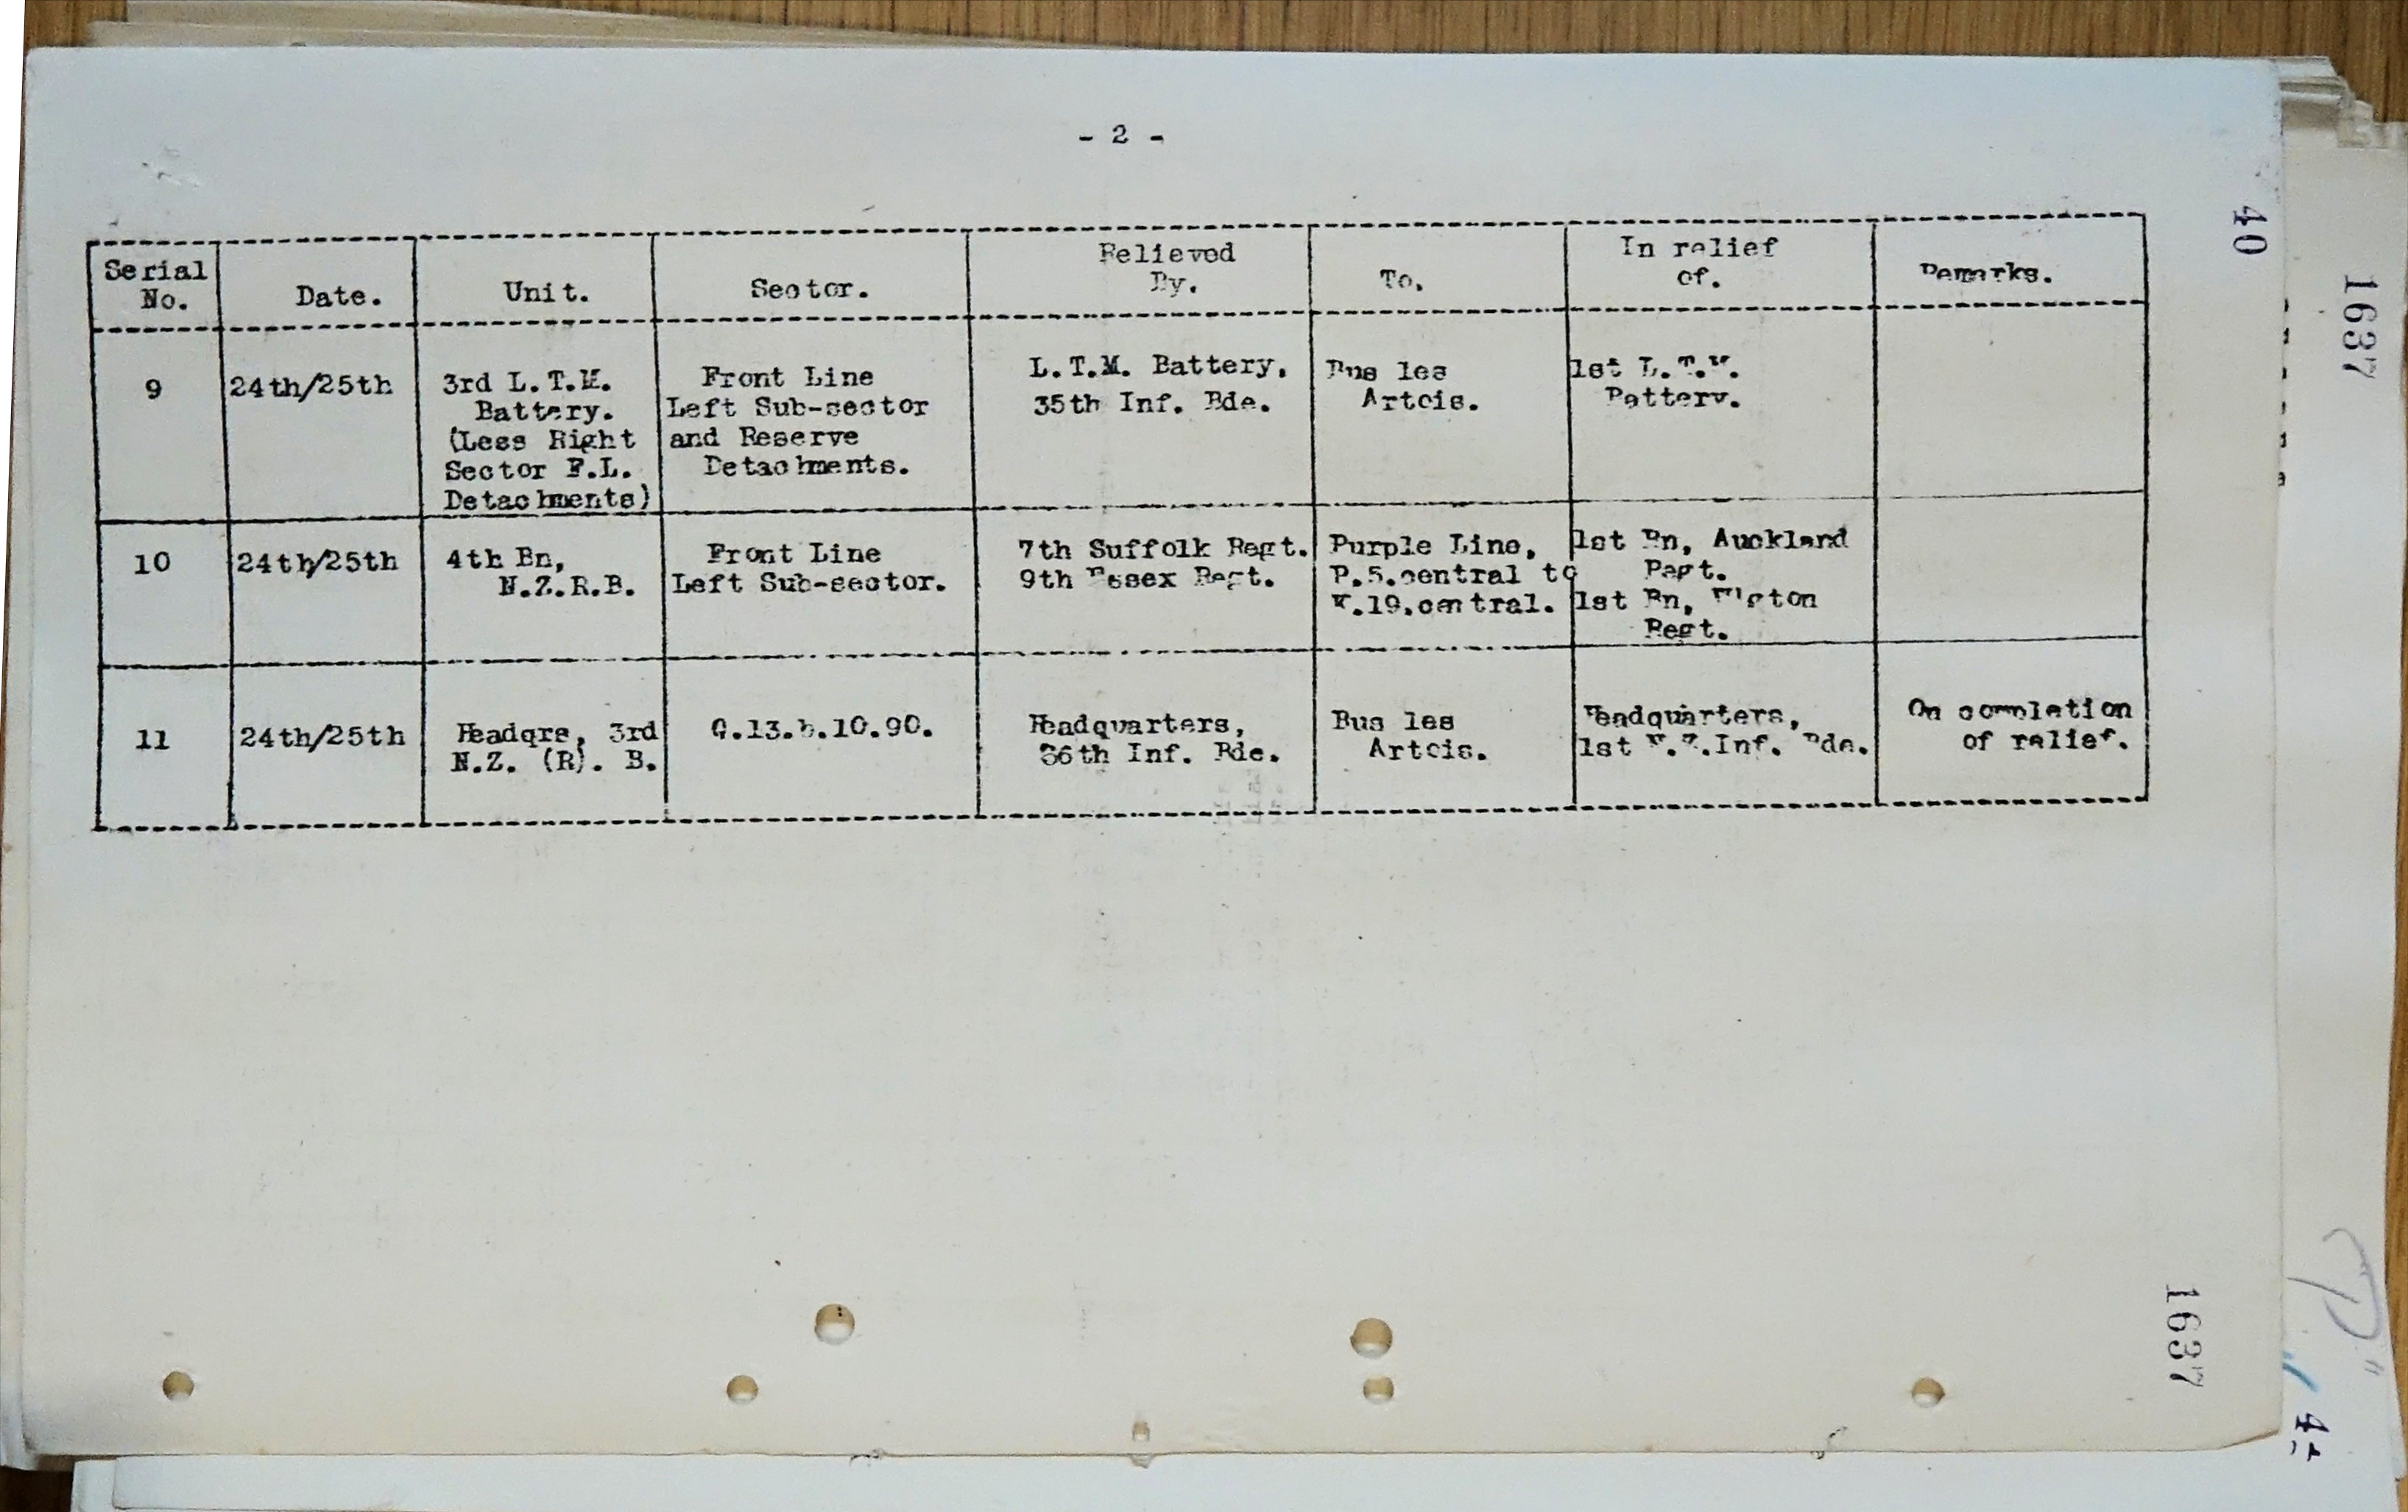 - 2 -
Serial No. Date. Unit. Sector. Relieved By. To. In relief of. Remarks.
9 24th/25th 3rd L.T.M. Battery. (Less Right Sector F.L. Detachments) Front Line Left Sub-sector and Reserve Detachments. L.T.M. Battery, 35th Inf. Bde. Bus les Artois. 1st L.T.M. Battery.
10 24th/25th 4th Bn, N.Z.R.B. Front Line Left Sub-sector. 7th Suffolk Regt. 9th Essex Regt. Purple Line, P.5.central to K.19.central. 1st Bn, Auckland Regt. 1st Bn, W'gton Regt.
11 24th/25th Headqrs, 3rd N.Z. (R). B. Q.13.b.10.90. Headquarters, 36th Inf. Bde. Bus les Artois. Headquarters, 1st N.Z.Inf. Bde. On completion of relief.
40
1637
1637